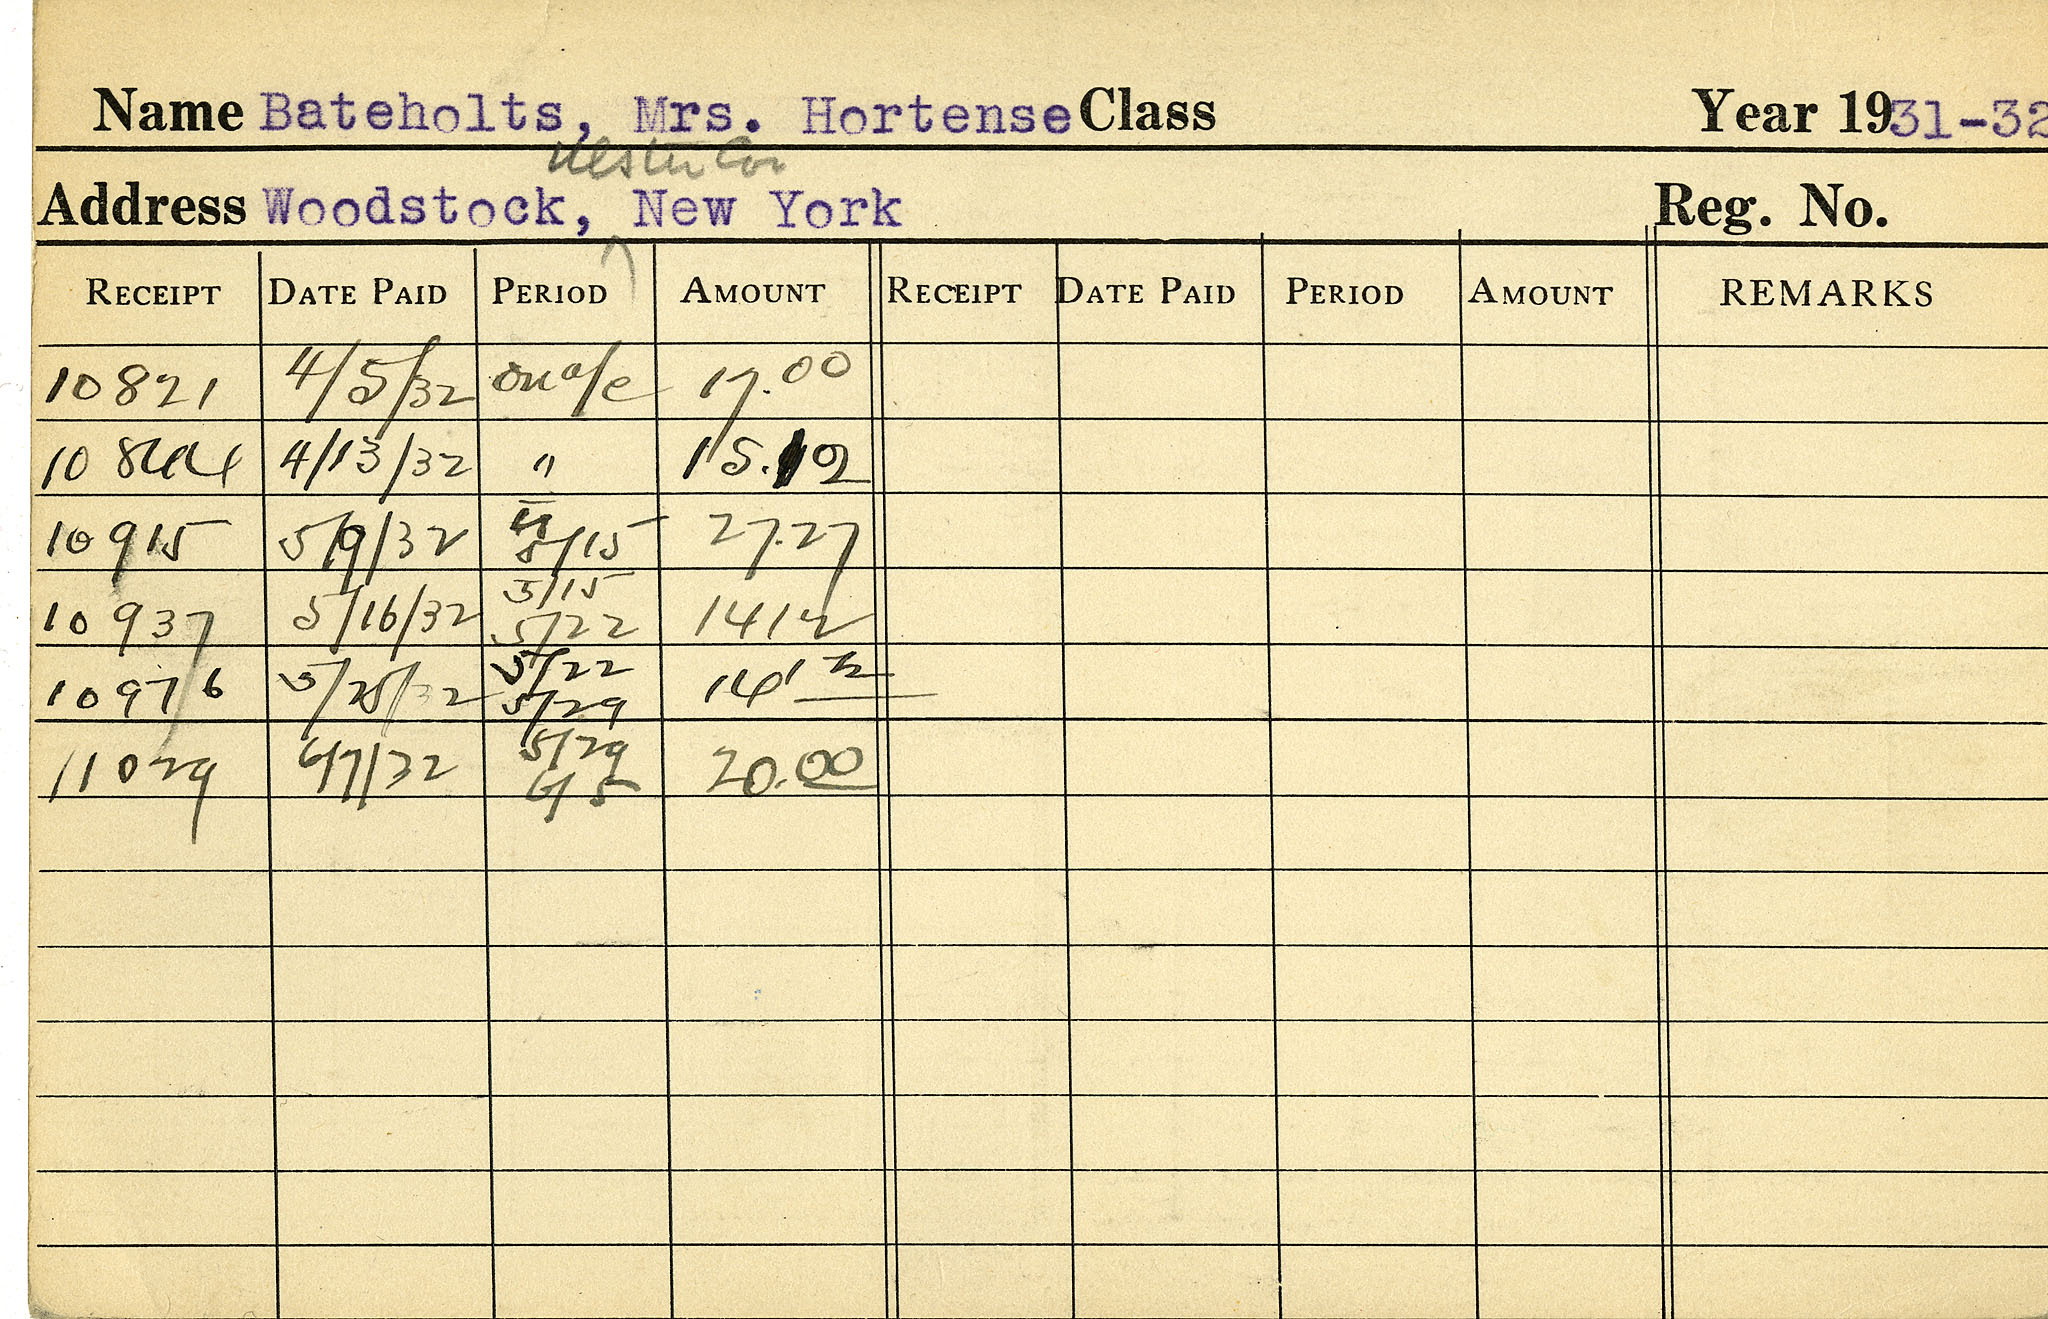 Name Bateholts, Mrs. Hortense Class Year 1931-32
Ulster Co.
Address Woodstock, New York Reg. No.
RECEIPT DATE PAID PERIOD AMOUNT RECEIPT DATE PAID PERIOD AMOUNT REMARKS
10821 4/5/32 on a/c 17.00
10844 4/13/32 " 15.12
10915 5/9/32 5/15 27.27
5/15
10937 5/16/32 5/22 14 12
5/22
10976 5/25/32 5/29 14 12
5/29
11029 6/7/32 6/5 20.00